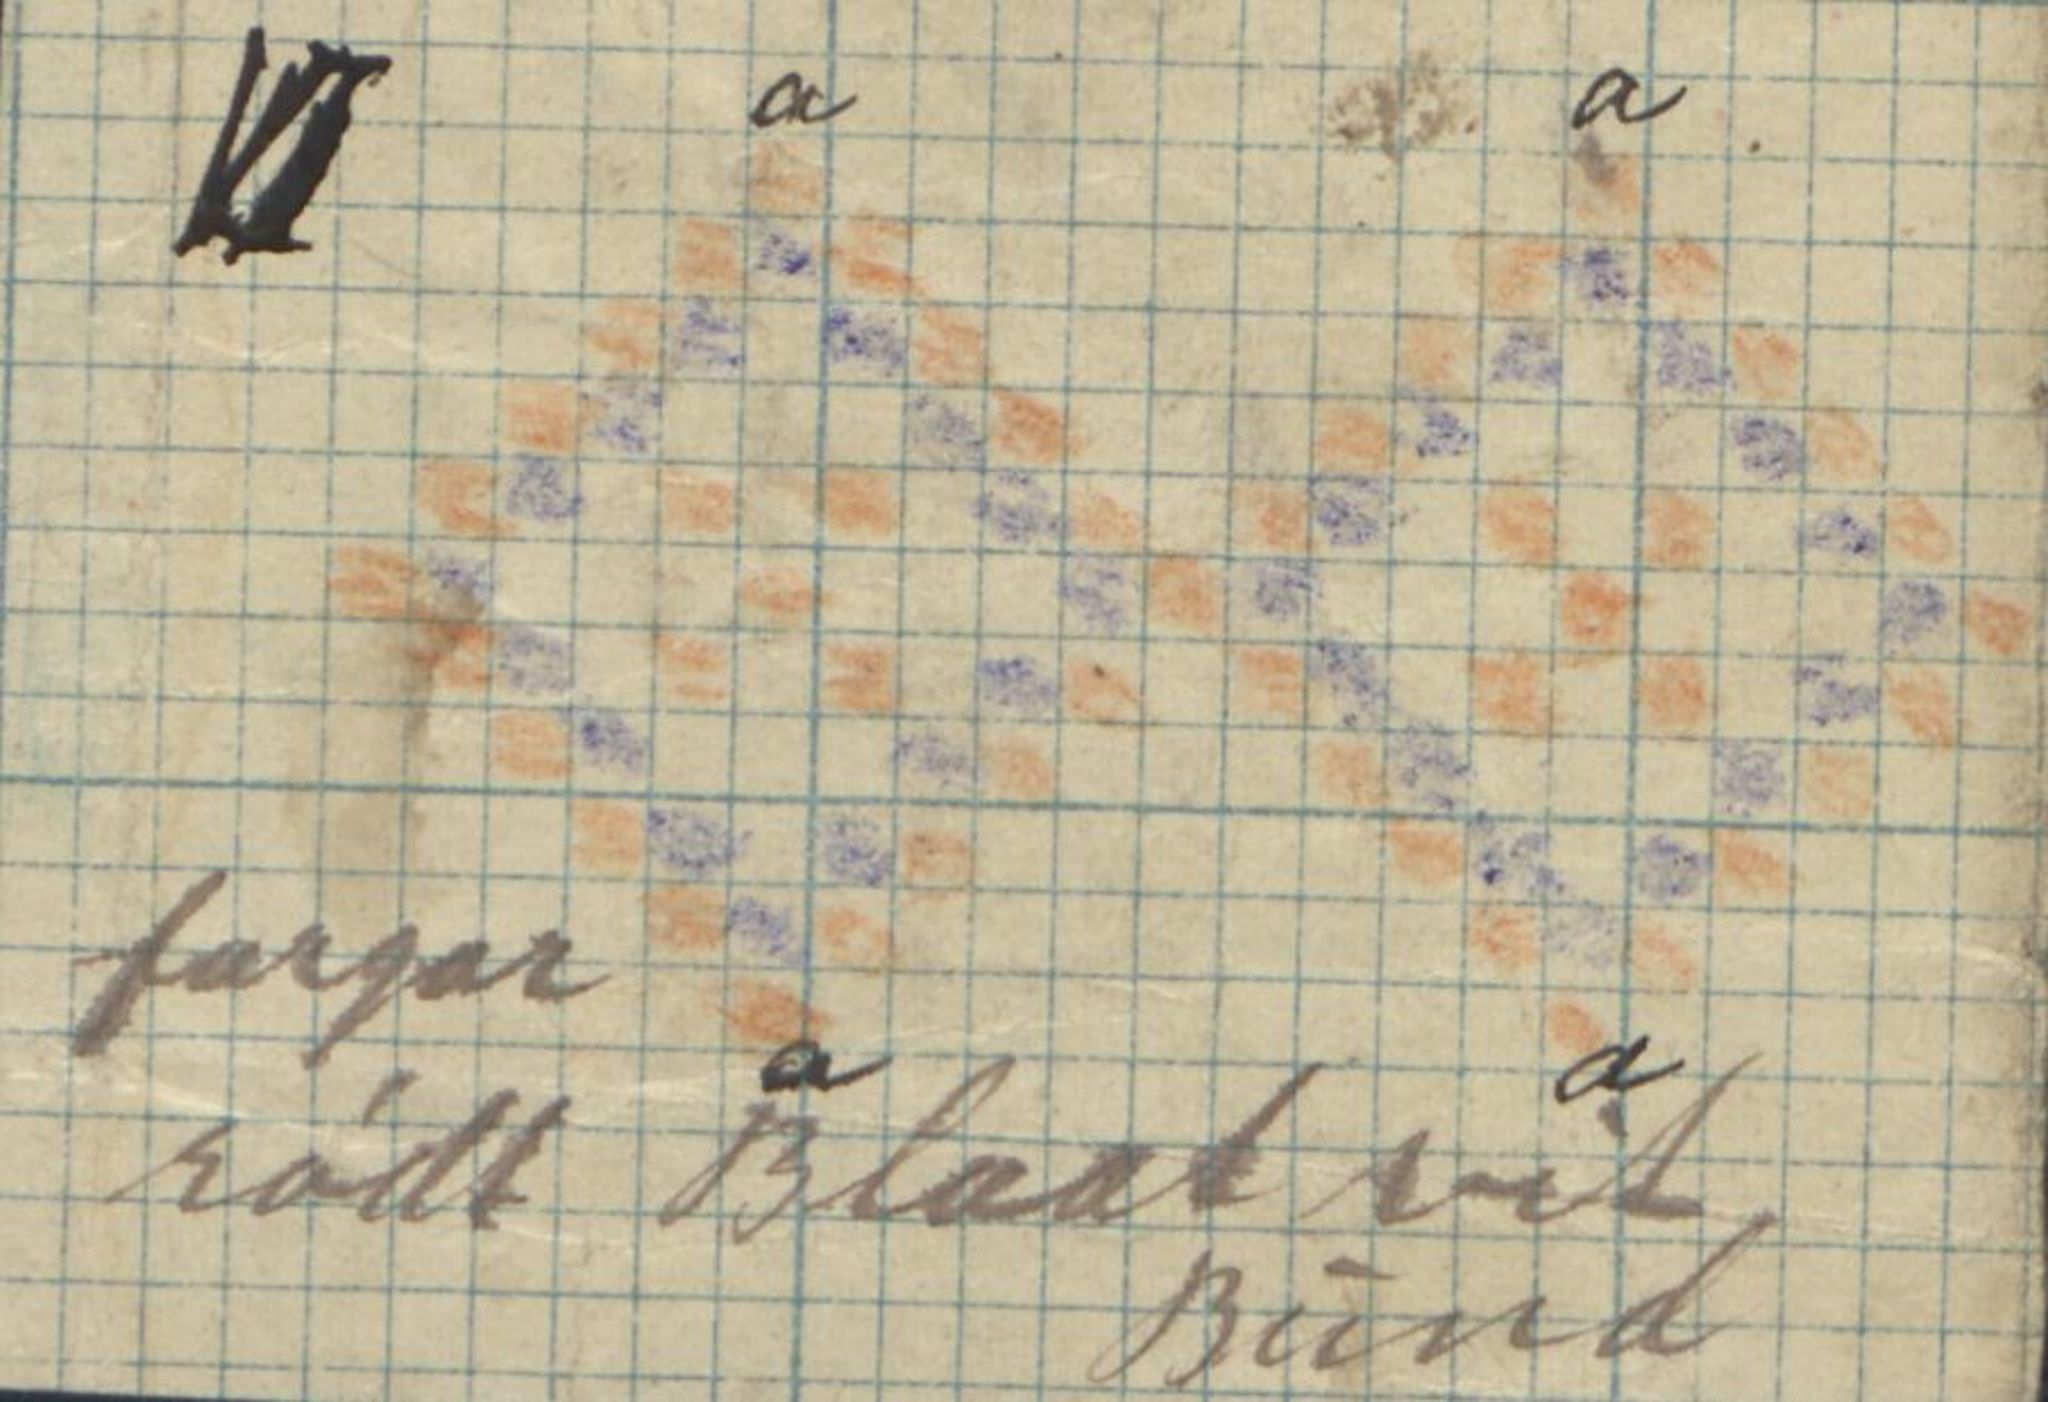 V
a a
fargar
a a
ródt Blaat vit
Bŭnd